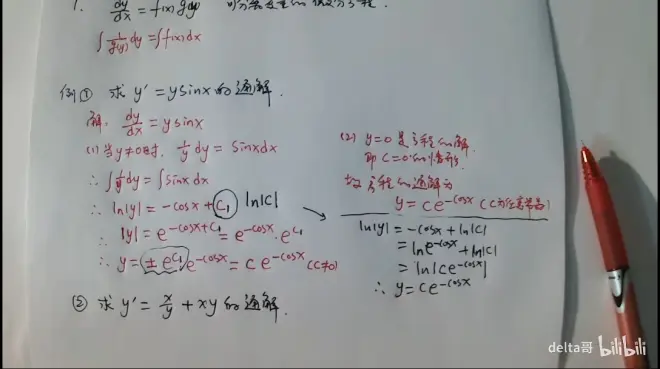 1. dy/dx = f(x)g(y) 可分离变量的微分方程.
∫ 1/g(y) dy = ∫ f(x)dx
例① 求 y' = ysinx 的通解.
解: dy/dx = ysinx
(1) 当 y≠0时, 1/y dy = sinxdx
∴ ∫ 1/y dy = ∫ sinxdx
∴ ln|y| = -cosx + C₁ ln|C|
∴ |y| = e^(-cosx+C₁) = e^(-cosx)·e^(C₁)
∴ y = ±e^(C₁)e^(-cosx) = Ce^(-cosx) (C≠0)
② 求 y' = x/y + xy 的通解.
(2) y=0 是方程的解.
即 C=0的情形.
故方程的通解为
y = Ce^(-cosx) (C为任意常数)
ln|y| = -cosx + ln|C|
= lne^(-cosx) + ln|C|
= ln|Ce^(-cosx)|
∴ y = Ce^(-cosx)
delta哥 bilibili